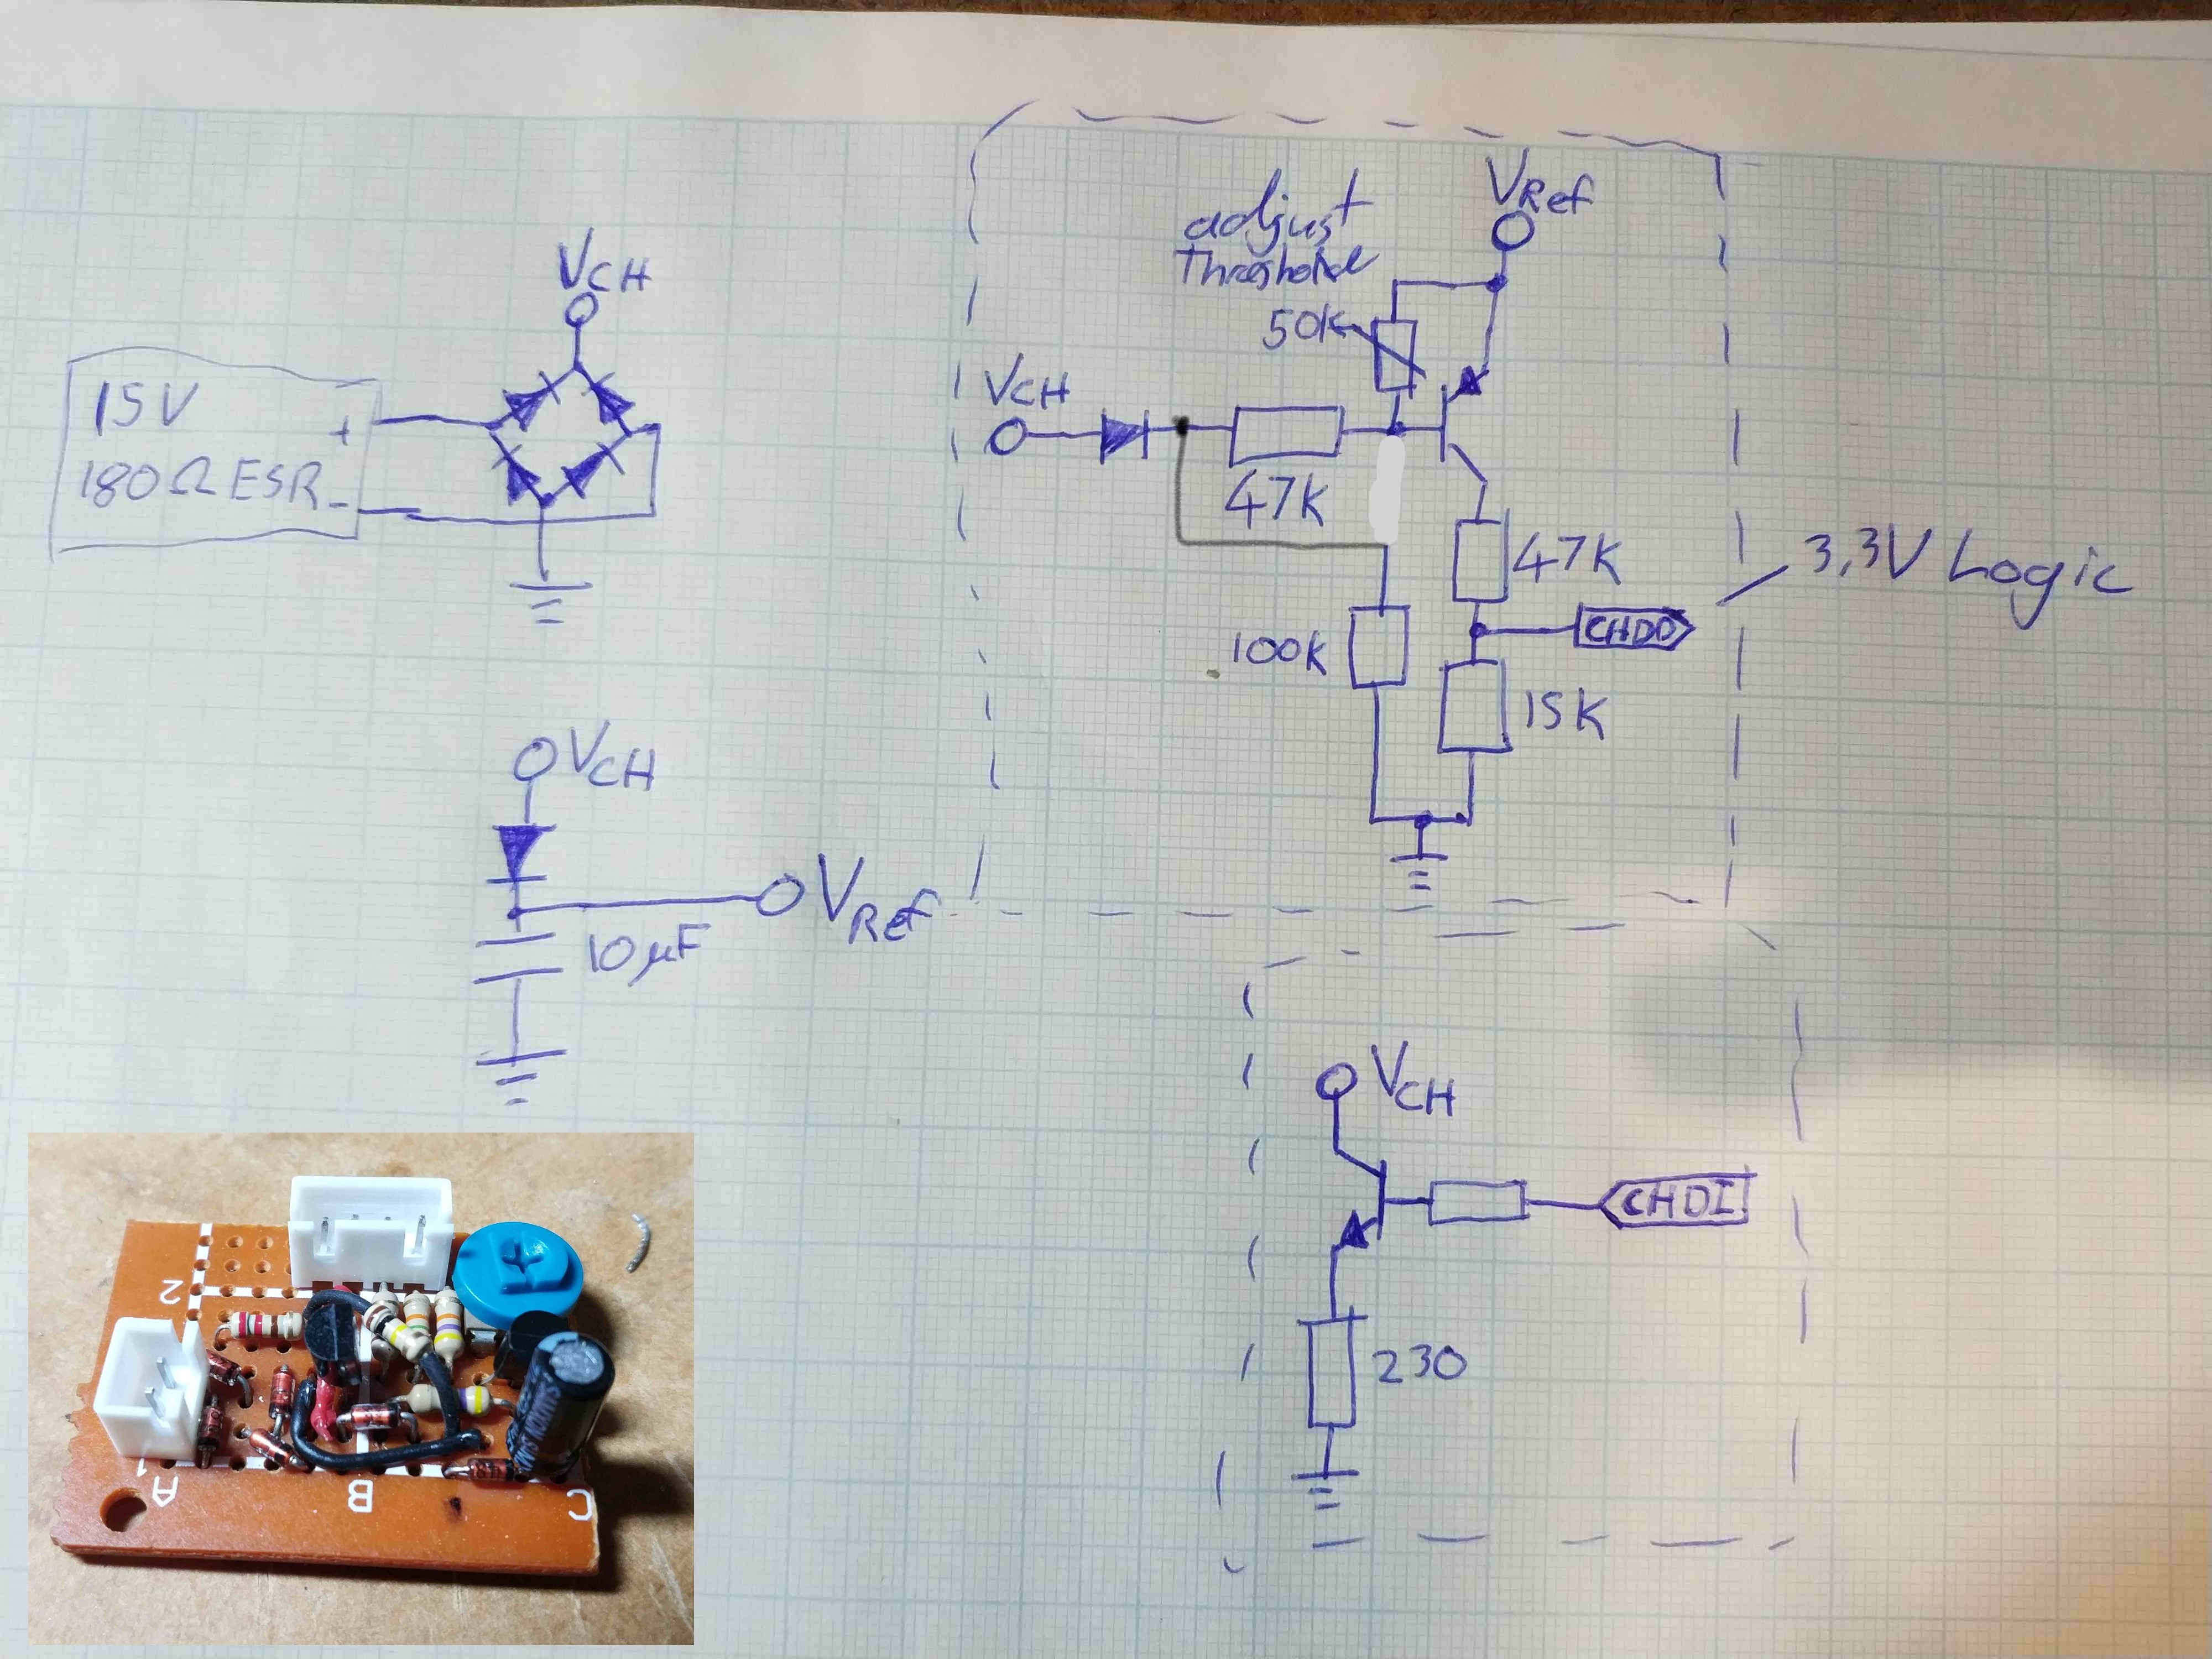 VCH
15V +
180Ω ESR -
adjust
Threshold
50k
VRef
VCH
47K
47K
3,3V Logic
CHDO
100k
15K
VCH
VRef
10µF
VCH
CHDI
230
2
1
A
B
C